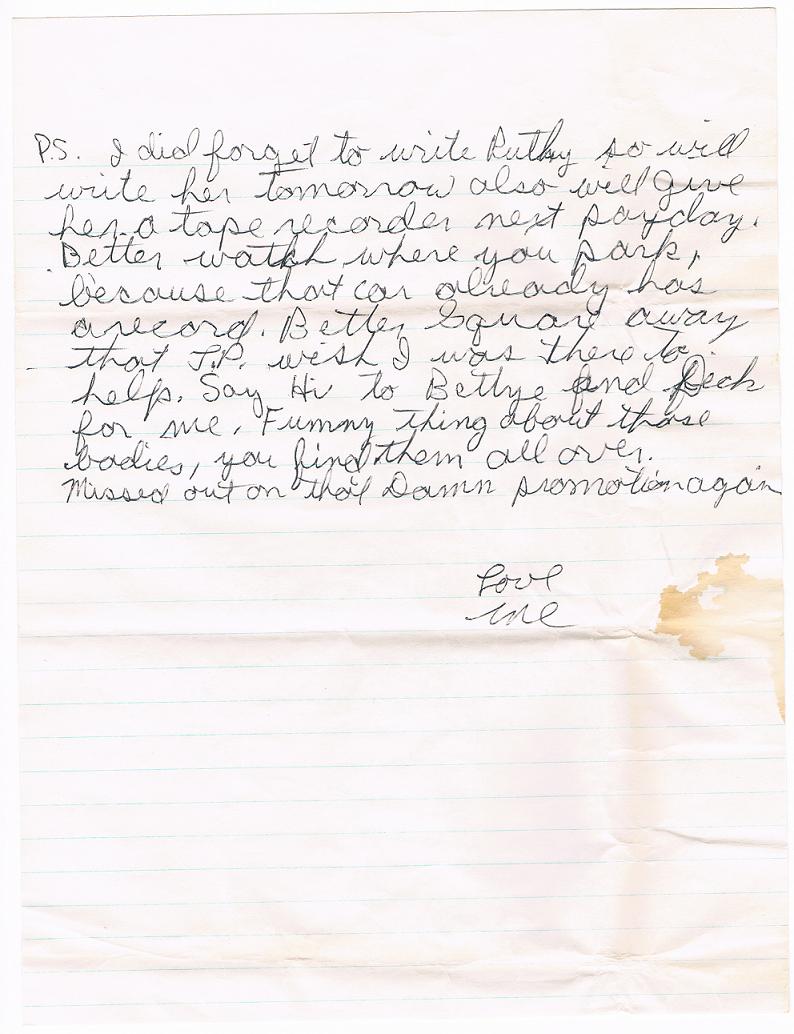 P.S. I did forget to write Ruthy so will
write her tomorrow also will give
her a tape recorder next payday.
Better watch where you park,
because that car already has
a record. Better Square away
that J.P. wish I was there to
help. Say Hi to Bettye and
for me. Funny thing about those
bodies, you find them all over.
Missed out on that Damn promotion again
Love
me